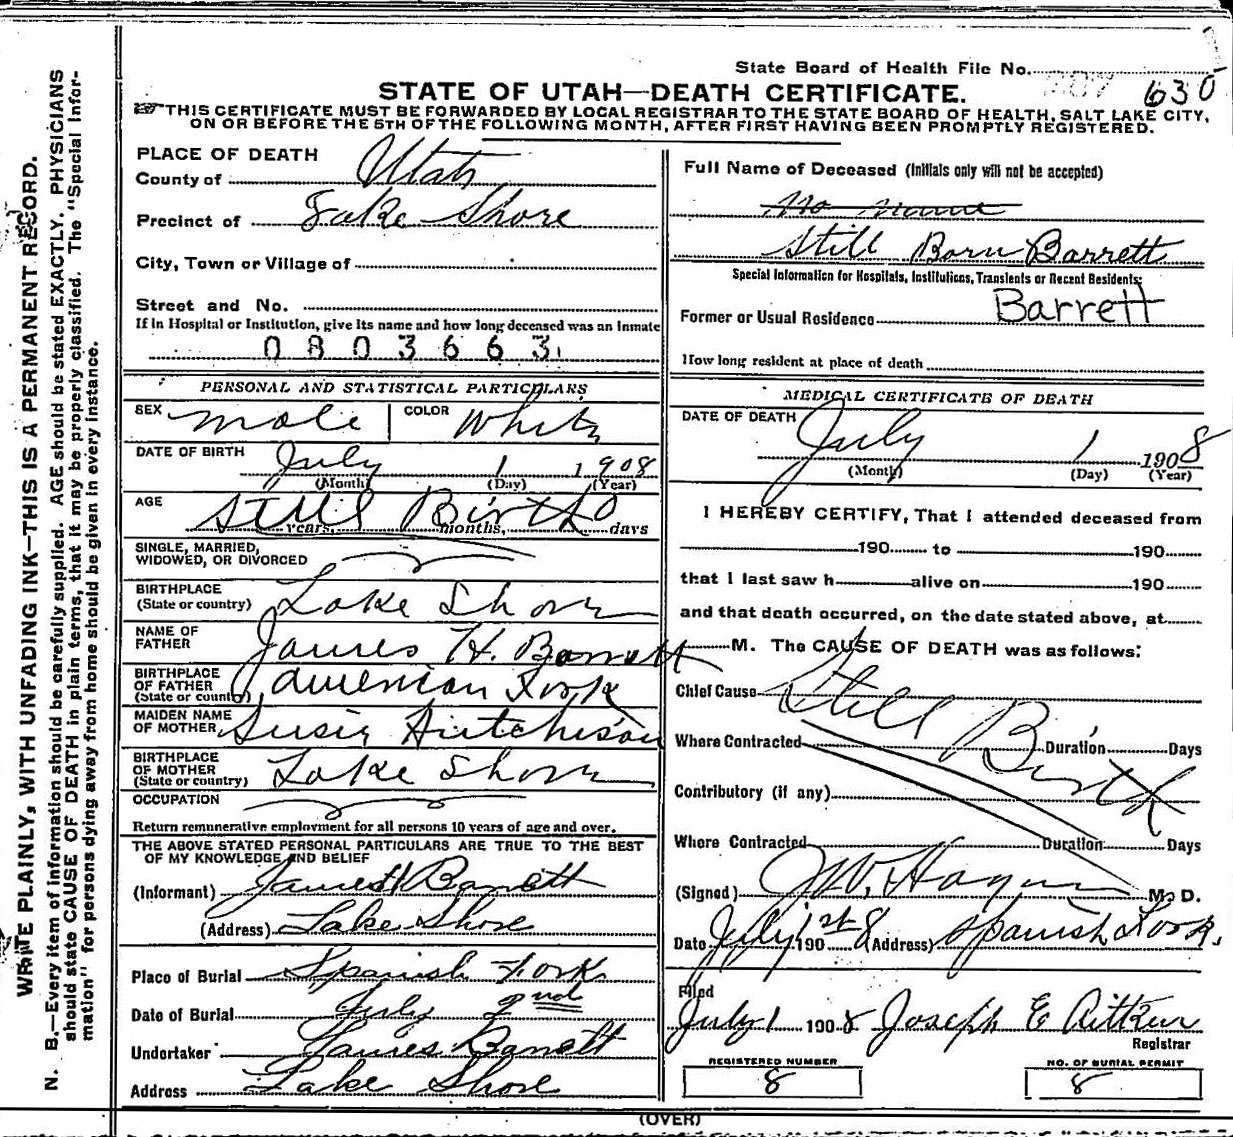 State Board of Health File No. 630
STATE OF UTAH—DEATH CERTIFICATE.
THIS CERTIFICATE MUST BE FORWARDED BY LOCAL REGISTRAR TO THE STATE BOARD OF HEALTH, SALT LAKE CITY,
ON OR BEFORE THE 5TH OF THE FOLLOWING MONTH, AFTER FIRST HAVING BEEN PROMPTLY REGISTERED.
WRITE PLAINLY, WITH UNFADING INK—THIS IS A PERMANENT RECORD.
N. B.—Every item of information should be carefully supplied. AGE should be stated EXACTLY. PHYSICIANS
should state CAUSE OF DEATH in plain terms, that it may be properly classified. The "Special Infor-
mation" for persons dying away from home should be given in every instance.
PLACE OF DEATH
County of Utah
Precinct of Lake Shore
City, Town or Village of
Street and No.
If in Hospital or Institution, give its name and how long deceased was an inmate
0803663
PERSONAL AND STATISTICAL PARTICULARS
SEX male COLOR White
DATE OF BIRTH July 1 1908
(Month) (Day) (Year)
AGE Still Birth
years, months, days
SINGLE, MARRIED,
WIDOWED, OR DIVORCED
BIRTHPLACE
(State or country) Lake Shore
NAME OF
FATHER James H. Barrett
BIRTHPLACE
OF FATHER
(State or country) American Fork
MAIDEN NAME
OF MOTHER Susie Hutchison
BIRTHPLACE
OF MOTHER
(State or country) Lake Shore
OCCUPATION
Return remunerative employment for all persons 10 years of age and over.
THE ABOVE STATED PERSONAL PARTICULARS ARE TRUE TO THE BEST
OF MY KNOWLEDGE AND BELIEF
(Informant) James H Barrett
(Address) Lake Shore
Place of Burial Spanish Fork
Date of Burial July 2nd
Undertaker James Barrett
Address Lake Shore
Full Name of Deceased (Initials only will not be accepted)
No name
Still Born Barrett
Special Information for Hospitals, Institutions, Transients or Recent Residents:
Barrett
Former or Usual Residence
How long resident at place of death
MEDICAL CERTIFICATE OF DEATH
DATE OF DEATH July 1 1908
(Month) (Day) (Year)
I HEREBY CERTIFY, That I attended deceased from
190 to 190
that I last saw h alive on 190
and that death occurred, on the date stated above, at
M. The CAUSE OF DEATH was as follows:
Chief Cause Still Birth
Where Contracted Duration Days
Contributory (if any)
Where Contracted Duration Days
(Signed) J.W. Hagen M. D.
Date July 1st 1908 (Address) Spanish Fork.
Filed
July 1 1908 Joseph E Aitken
Registrar
REGISTERED NUMBER NO. OF BURIAL PERMIT
8 8
(OVER)